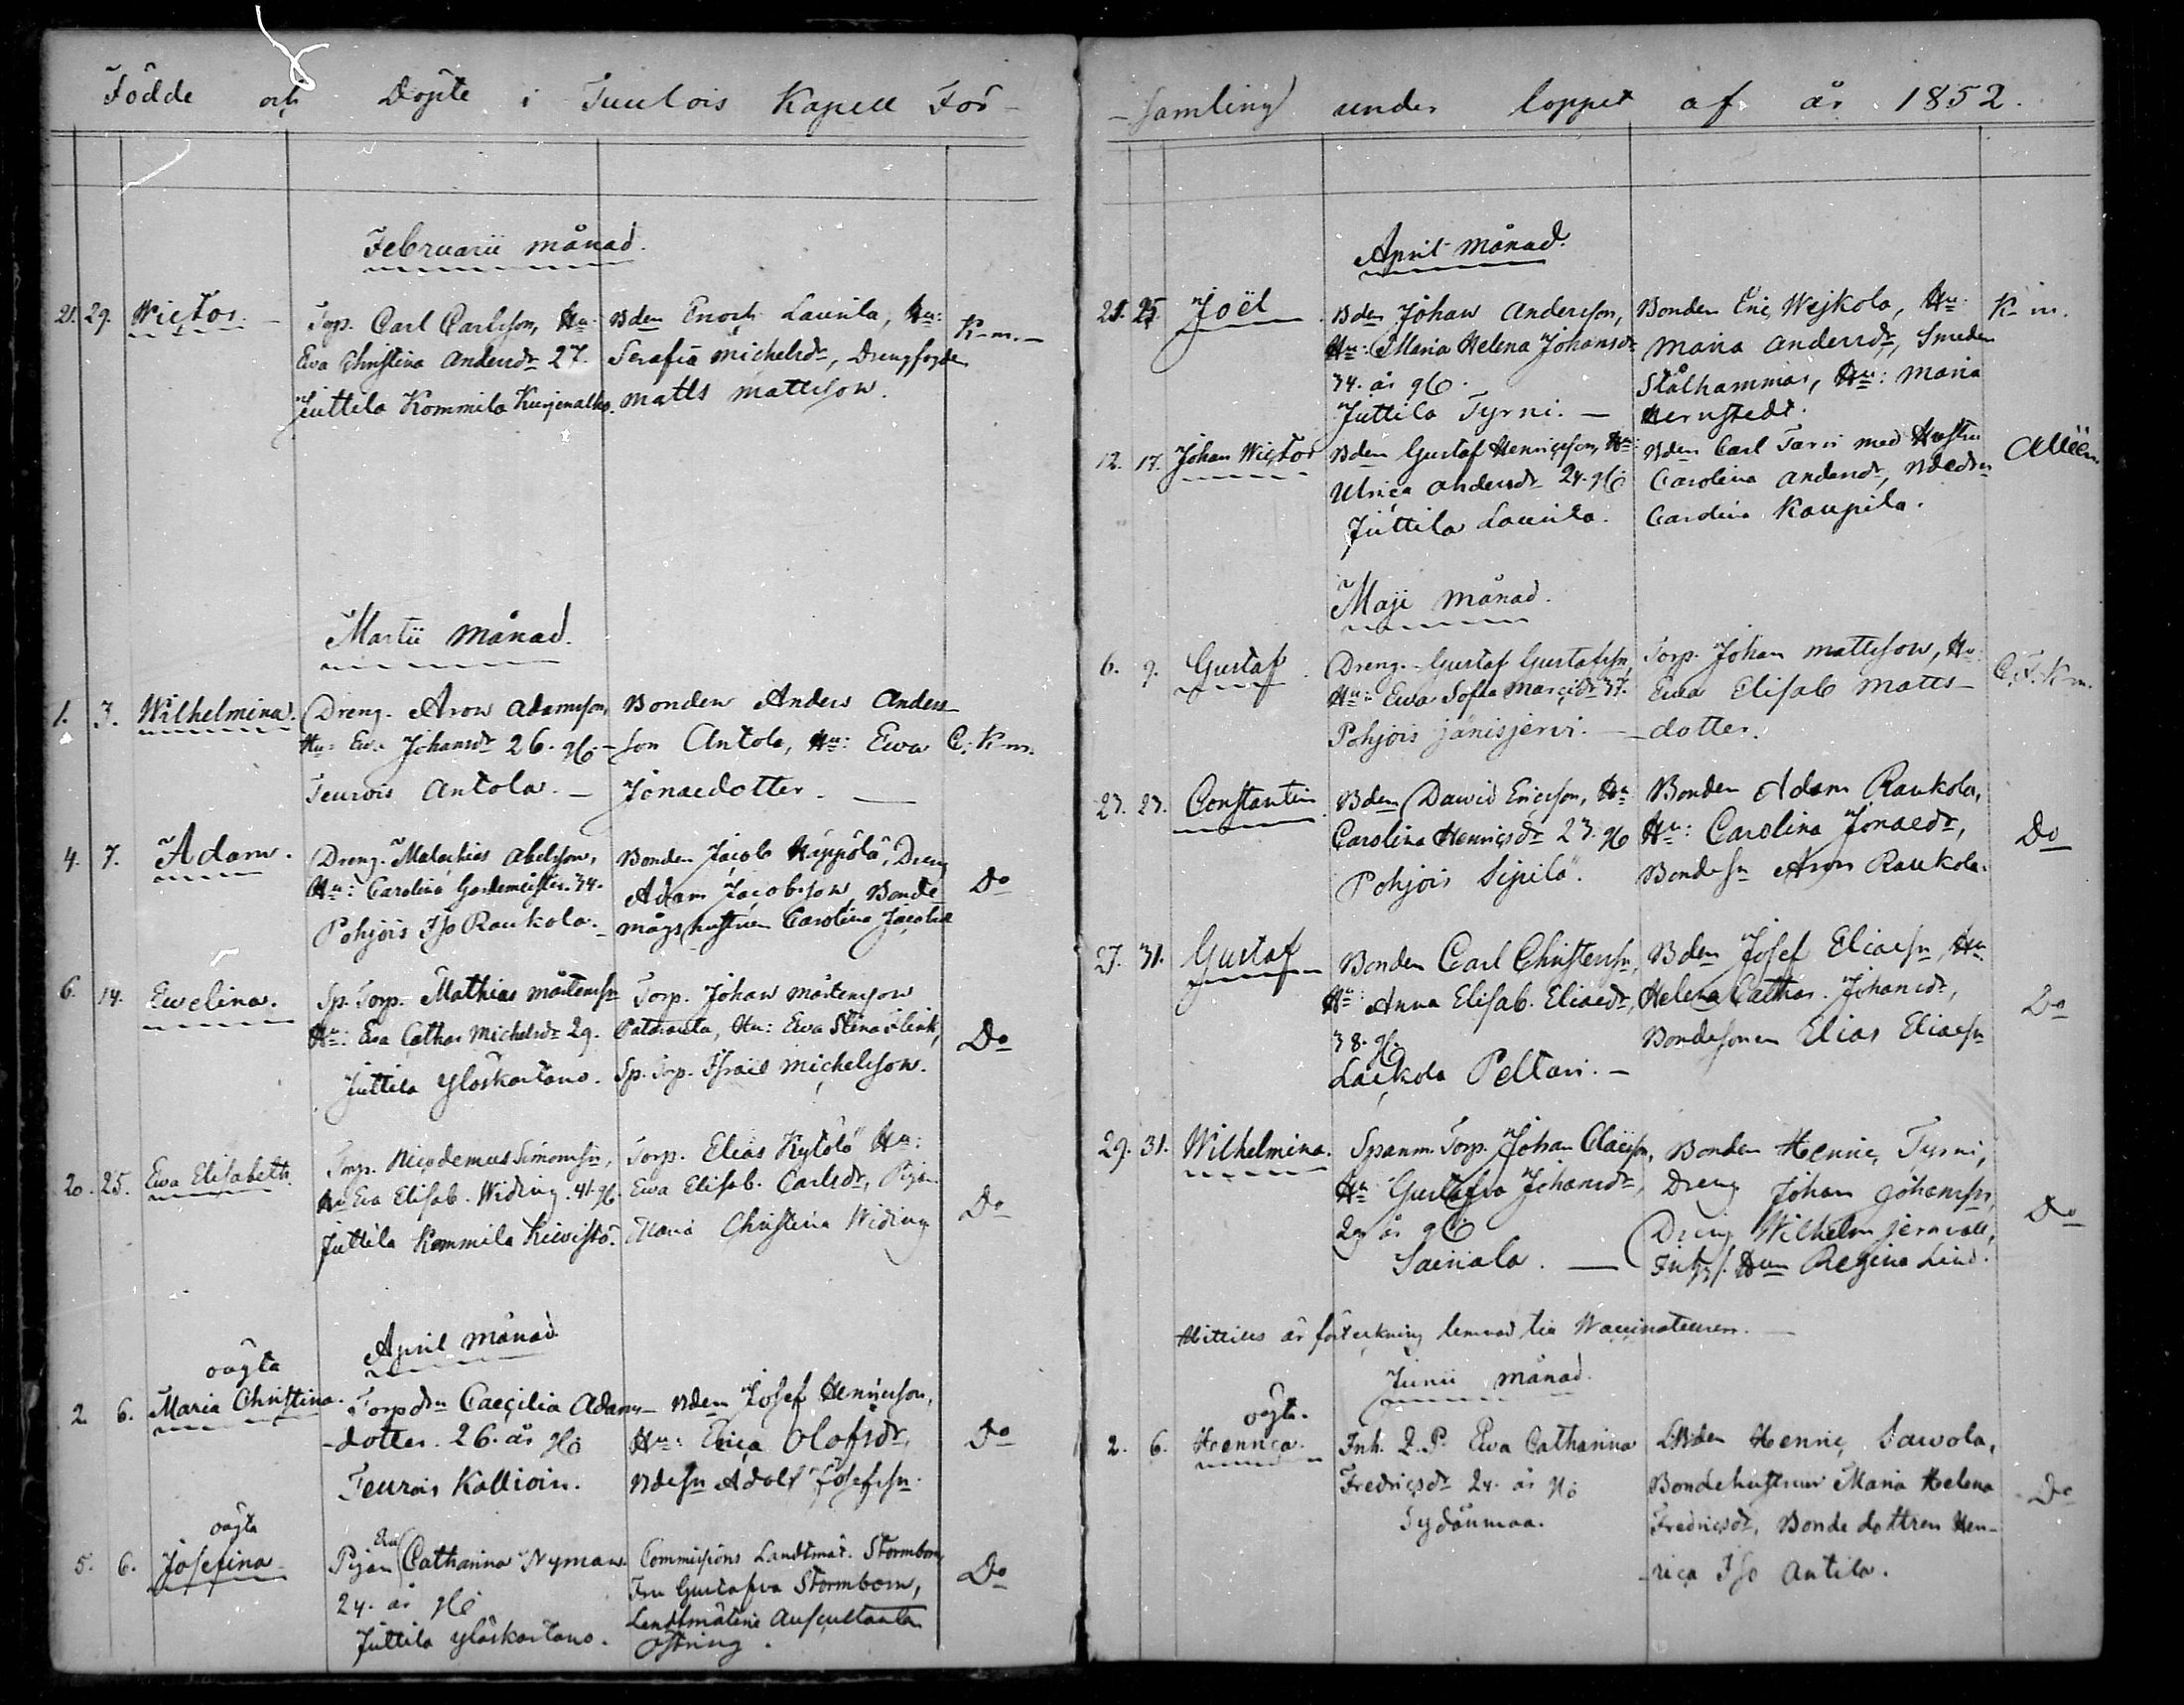 Födde och Döpte i Tuulois Kapell För-
Februarii månad.
21. 29. Wictor.
Torp. Carl Carlsson, Hu
Eva Christina Andersdr 27.
Juttila Kommila Kurjenalho.
Bden Enoch Launila, Hu:
Serafia Michelsdr, Drengfogden
Matts Mattsson.
K-m.
Martii månad.
1. 3. Wilhelmina.
Dreng. Aron Adamsson,
Hu: Eva Johansdr 26.
Teurois Antola.
Bonden Anders Anders-
son Antola, Hu: Ewa
Jonaedotter.
C: K-m.
4. 7. Adam.
Dreng. Malachias Abelsson,
Hu: Carolina 34.
Pohjois Iso Raukola.
Bonden Jacob Häppölä, Dreng
Adam Jacobsson, Bonde
mågshustrun Carolina Jacobsdr
Do
6. 14. Ewelina.
Sp. Torp. Mathias Mårtenssn
Hu: Eva Cathar Michelsdr 29.
Juttila Yläskartano.
Torp. Johan Mårtensson
Hu: Ewa Stina Flink,
Sp. Torp. Israel Michelsson.
Do
20. 25. Ewa Elisabeth.
Torp. Nicodemus Simonssn,
Hu Eva Elisab. Widing. 41.
Juttila Kommila Kiwistö.
Torp. Elias Kytölö Hu:
Ewa Elisab. Carlsdr, Pigan
Maria Christina Widing
Do
April månad
oägta
2 6. Maria Christina.
Torpdrn Caecilia Adams-
-dotter. 26. år
Teurois Kallioin.
Bden Josef Henricsson,
Hu: Erica Olofsdr,
Bdesn Adolf Josefssn.
Do
oägta
5. 6. Josefina
Pigan Eva Catharina Nyman
24. år
Juttila Yläskartano.
Commissions Landtmät. Stormbom,
Fru Gustafva Stormbom,
Landtmäteri Auscultanten
Östring.
Do
-samling under loppet af år 1852.
April månad.
21. 25 Joël
Bden Johan Andersson,
Hu: Maria Helena Johansdr
34. år
Juttila Tyrni.
Bonden Eric Wejkola, Hu:
Maria Andersdr, Smeden
Stålhammar, Hu: Maria
Hernstedt.
K-m.
12. 17. Johan Wictor
Bden Gustaf Henricsson, Hu:
Ulrica Andersdr 24.
Juttila Launila.
Bden Carl Tarri med Hustru
Carolina Andersdr, Bdedrn
Carolina Kaupila.
Maji månad.
6. 9. Gustaf
Dreng. Gustaf Gustafssn,
Hu: Ewa Sofia 37.
Pohjois jänisjerwi.
Torp. Johan Mattsson, Hu:
Ewa Elisab Matts-
-dotter.
C. F. K-m.
23. 23. Constantin
Bden Dawid Ericsson, Hu
Carolina Henricsdr 23.
Pohjois Sipilä.
Bonden Adam Raukola,
Hu: Carolina Jonaedr,
Bondesn Aron Raukola.
Do
27. 31. Gustaf
Bonden Carl Christerssn,
Hu: Anna Elisab. Eliaedr,
38.
Laikola Peltari.
Bden Josef Eliaesn, Hu
Helena Cathar. Johansdr,
Bondesonen Elias Eliaesn
Do
29. 31. Wilhelmina.
Spanm. Torp. Johan
Hu Gustafva Johansdr,
29 år
Sairiala.
Bonden Henric Tyrni,
Dreng Johan Johanssn,
Dreng Wilhelm Jernvall,
Hun Regina Lind.
Do
Hittills är förteckning lemnad till Waccinateuren.
Junii månad.
oägta.
2. 6. Henrica.
Inh. Q. P. Ewa Catharina
Fredricsdr 24. år
Sydänmaa.
Bden Henric Sawola,
Bondehustrun Maria Helena
Fredricsdr, Bondedottren Hen-
-rica Iso Antila.
Do